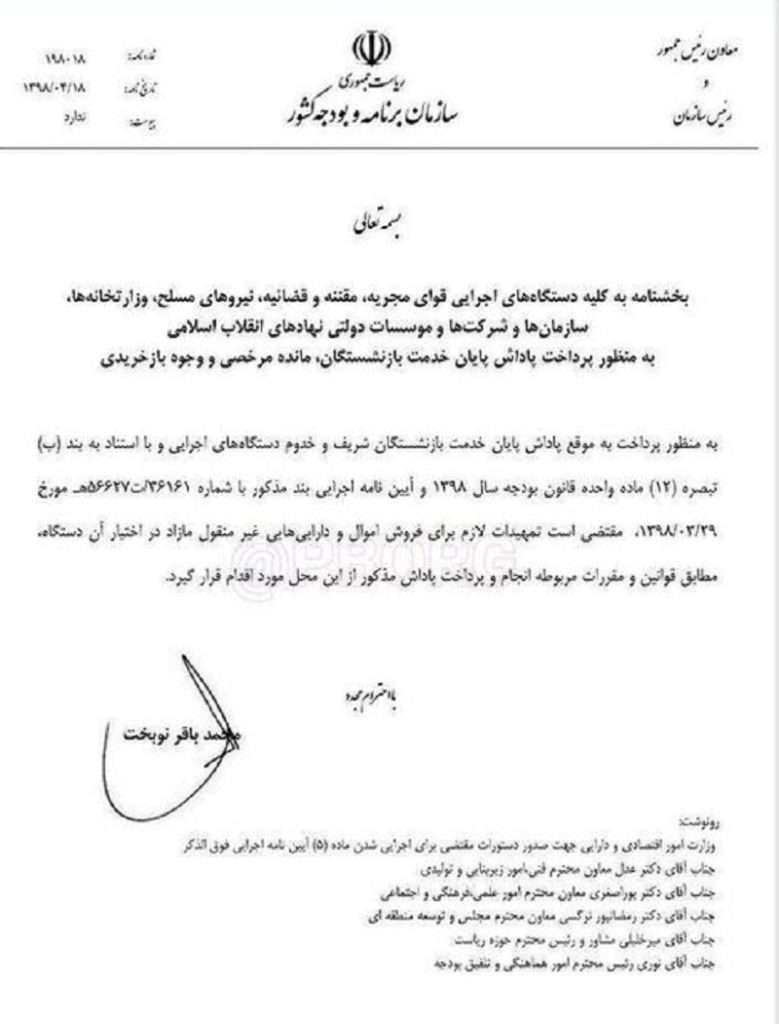 معاون رئیس جمهور
و
رئیس سازمان
ریاست جمهوری
سازمان برنامه و بودجه کشور
شماره نامه: ۱۹۸۰۱۸
تاریخ نامه: ۱۳۹۸/۰۴/۱۸
پیوست: ندارد
بسمه تعالی
بخشنامه به کلیه دستگاه‌های اجرایی قوای مجریه، مقننه و قضائیه، نیروهای مسلح، وزارتخانه‌ها،
سازمان‌ها و شرکت‌ها و موسسات دولتی نهادهای انقلاب اسلامی
به منظور پرداخت پاداش پایان خدمت بازنشستگان، مانده مرخصی و وجوه بازخریدی
به منظور پرداخت به موقع پاداش پایان خدمت بازنشستگان شریف و خدوم دستگاه‌های اجرایی و با استناد به بند (ب)
تبصره (۱۲) ماده واحده قانون بودجه سال ۱۳۹۸ و آیین نامه اجرایی بند مذکور با شماره ۳۶۱۶۱/ت۵۶۶۲۷هـ مورخ
۱۳۹۸/۰۳/۲۹، مقتضی است تمهیدات لازم برای فروش اموال و دارایی‌هایی غیر منقول مازاد در اختیار آن دستگاه،
مطابق قوانین و مقررات مربوطه انجام و پرداخت پاداش مذکور از این محل مورد اقدام قرار گیرد.
@PRORG
با احترام مجدد
محمد باقر نوبخت
رونوشت:
وزارت امور اقتصادی و دارایی جهت صدور دستورات مقتضی برای اجرایی شدن ماده (۵) آیین نامه اجرایی فوق الذکر
جناب آقای دکتر عدل معاون محترم فنی،امور زیربنایی و تولیدی
جناب آقای دکتر پوراصغری معاون محترم امور علمی،فرهنگی و اجتماعی
جناب آقای دکتر رمضانپور نرگسی معاون محترم مجلس و توسعه منطقه ای
جناب آقای میرخلیلی مشاور و رئیس محترم حوزه ریاست
جناب آقای نوری رئیس محترم امور هماهنگی و تلفیق بودجه